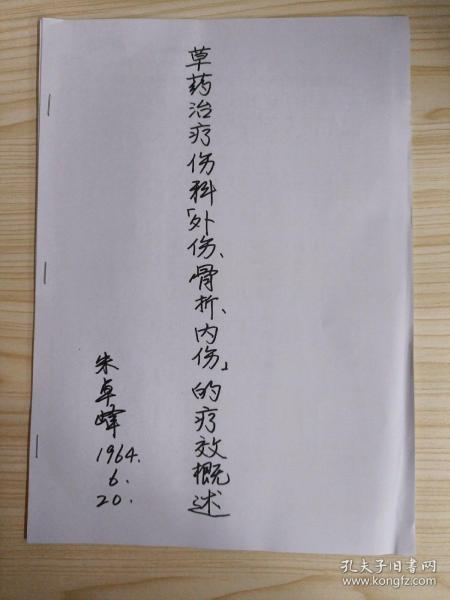 草药治疗伤科「外伤、骨折、内伤」的疗效概述
朱卓峰
1964.
6.
20.
孔夫子旧书网
www.kongfz.com